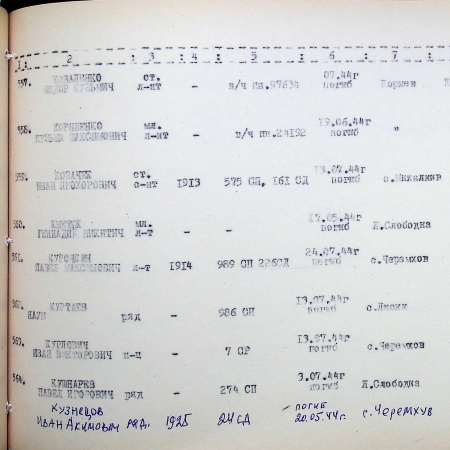 1: 2 : 3 : 4 : 5 : 6 : 7 :
957. КОВАЛЕНКО ст. 07.44г
ФЕДОР КУЗЬМИЧ л-нт - п/ч пп.97634 погиб Кормен
958. КОРНИЕНКО мл. 19.06.44г
КУЗЬМА МАКСИМОВИЧ л-нт - п/ч пп.24192 погиб "
959. КОВАЧЕК ст. 13.07.44г
ИВАН ПРОХОРОВИЧ с-нт 1913 575 СП, 161 СД погиб с.Михалики
960. мл. 17.05.44г
ГЕННАДИЙ НИКИТИЧ л-т - - погиб Л.Слободка
961. КУРОЧКИН 24.07.44г
ПАВЕЛ МАКСИМОВИЧ л-т 1914 989 СП 226СД погиб с.Черемхов
962. КУРТАЕВ 13.07.44г
НАУМ ряд - 986 СП погиб с.Лиски
963. 13.07.44г
ИВАН ВИКТОРОВИЧ - 7 СР погиб с.Черемхов
964. КУШНАРЕВ 3.07.44г
ПАВЕЛ ЕГОРОВИЧ ряд - 274 СП погиб Л.Слободка
Кузнецов погиб
Иван Акимовыч ряд. 1925 24 СД 20.05.44г. с.Черемхув